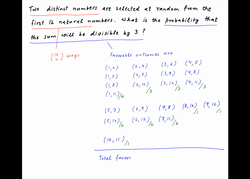 Two distinct numbers are selected at random from the
first 12 natural numbers. What is the probability that
the sum will be divisible by 3 ?
(12 2) ways
favorable outcomes are
(1,2) (2,4) (3,6) (4,5)
(1,5) (2,7) (3,9) (4,8)
(1,8) (2,10)/3 (3,12)/3 (4,11)/3
(1,11)/4
(5,7) (6,9) (7,8) (8,10)/1 (9,12)/1
(5,10)/2 (6,12)/2 (7,11)/2
(10,11)/1
Total favor